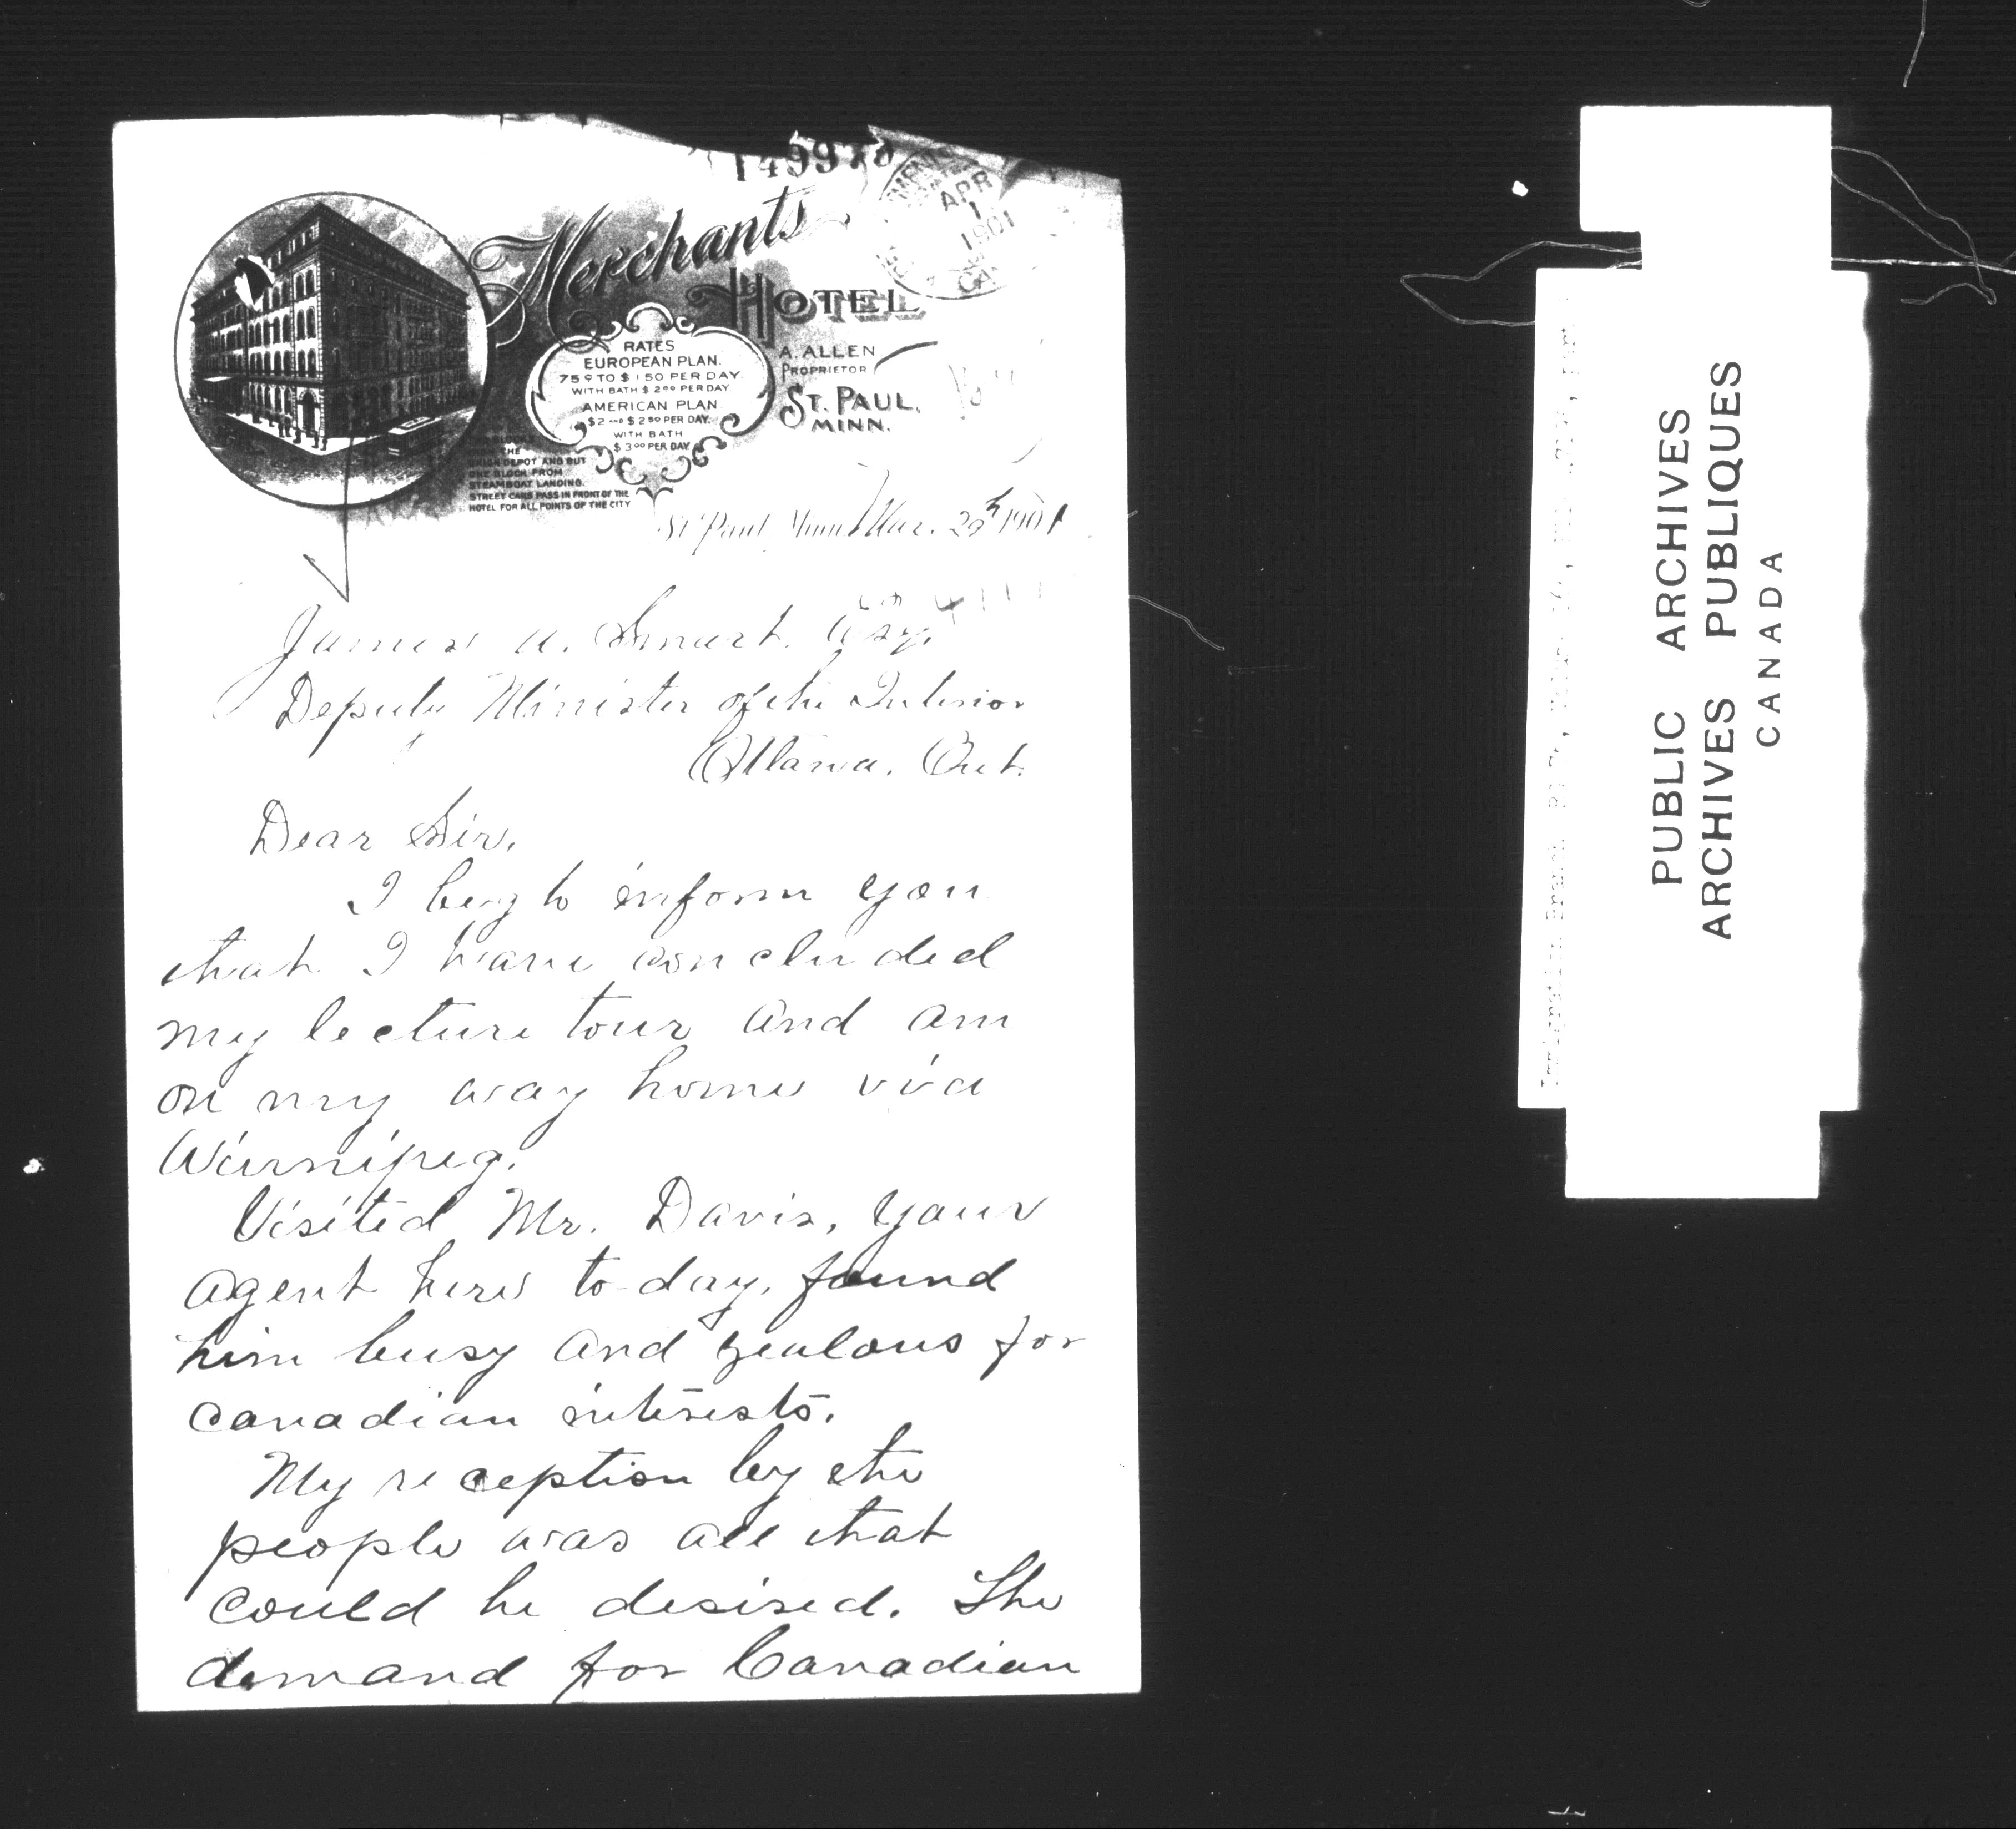 149978
APR
1
1901
Merchants
HOTEL
RATES
EUROPEAN PLAN.
75¢ TO $1.50 PER DAY.
WITH BATH $2.00 PER DAY
AMERICAN PLAN
$2 AND $2.50 PER DAY.
WITH BATH
$3.00 PER DAY
A. ALLEN
PROPRIETOR
ST. PAUL,
MINN.
THE
UNION DEPOT AND BUT
ONE BLOCK FROM
STEAMBOAT LANDING.
STREET CARS PASS IN FRONT OF THE
HOTEL FOR ALL POINTS OF THE CITY
St Paul, Minn. Mar. 29th 1901
James A. Smart. Esq.
Deputy Minister of the Interior
Ottawa. Ont.
Dear Sir,
I beg to inform you
that I have concluded
my lecture tour and am
on my way home via
Winnipeg.
Visited Mr. Davis, your
agent here to-day, found
him busy and zealous for
Canadian interests.
My reception by the
people was all that
could be desired. The
demand for Canadian
PUBLIC ARCHIVES
ARCHIVES PUBLIQUES
CANADA